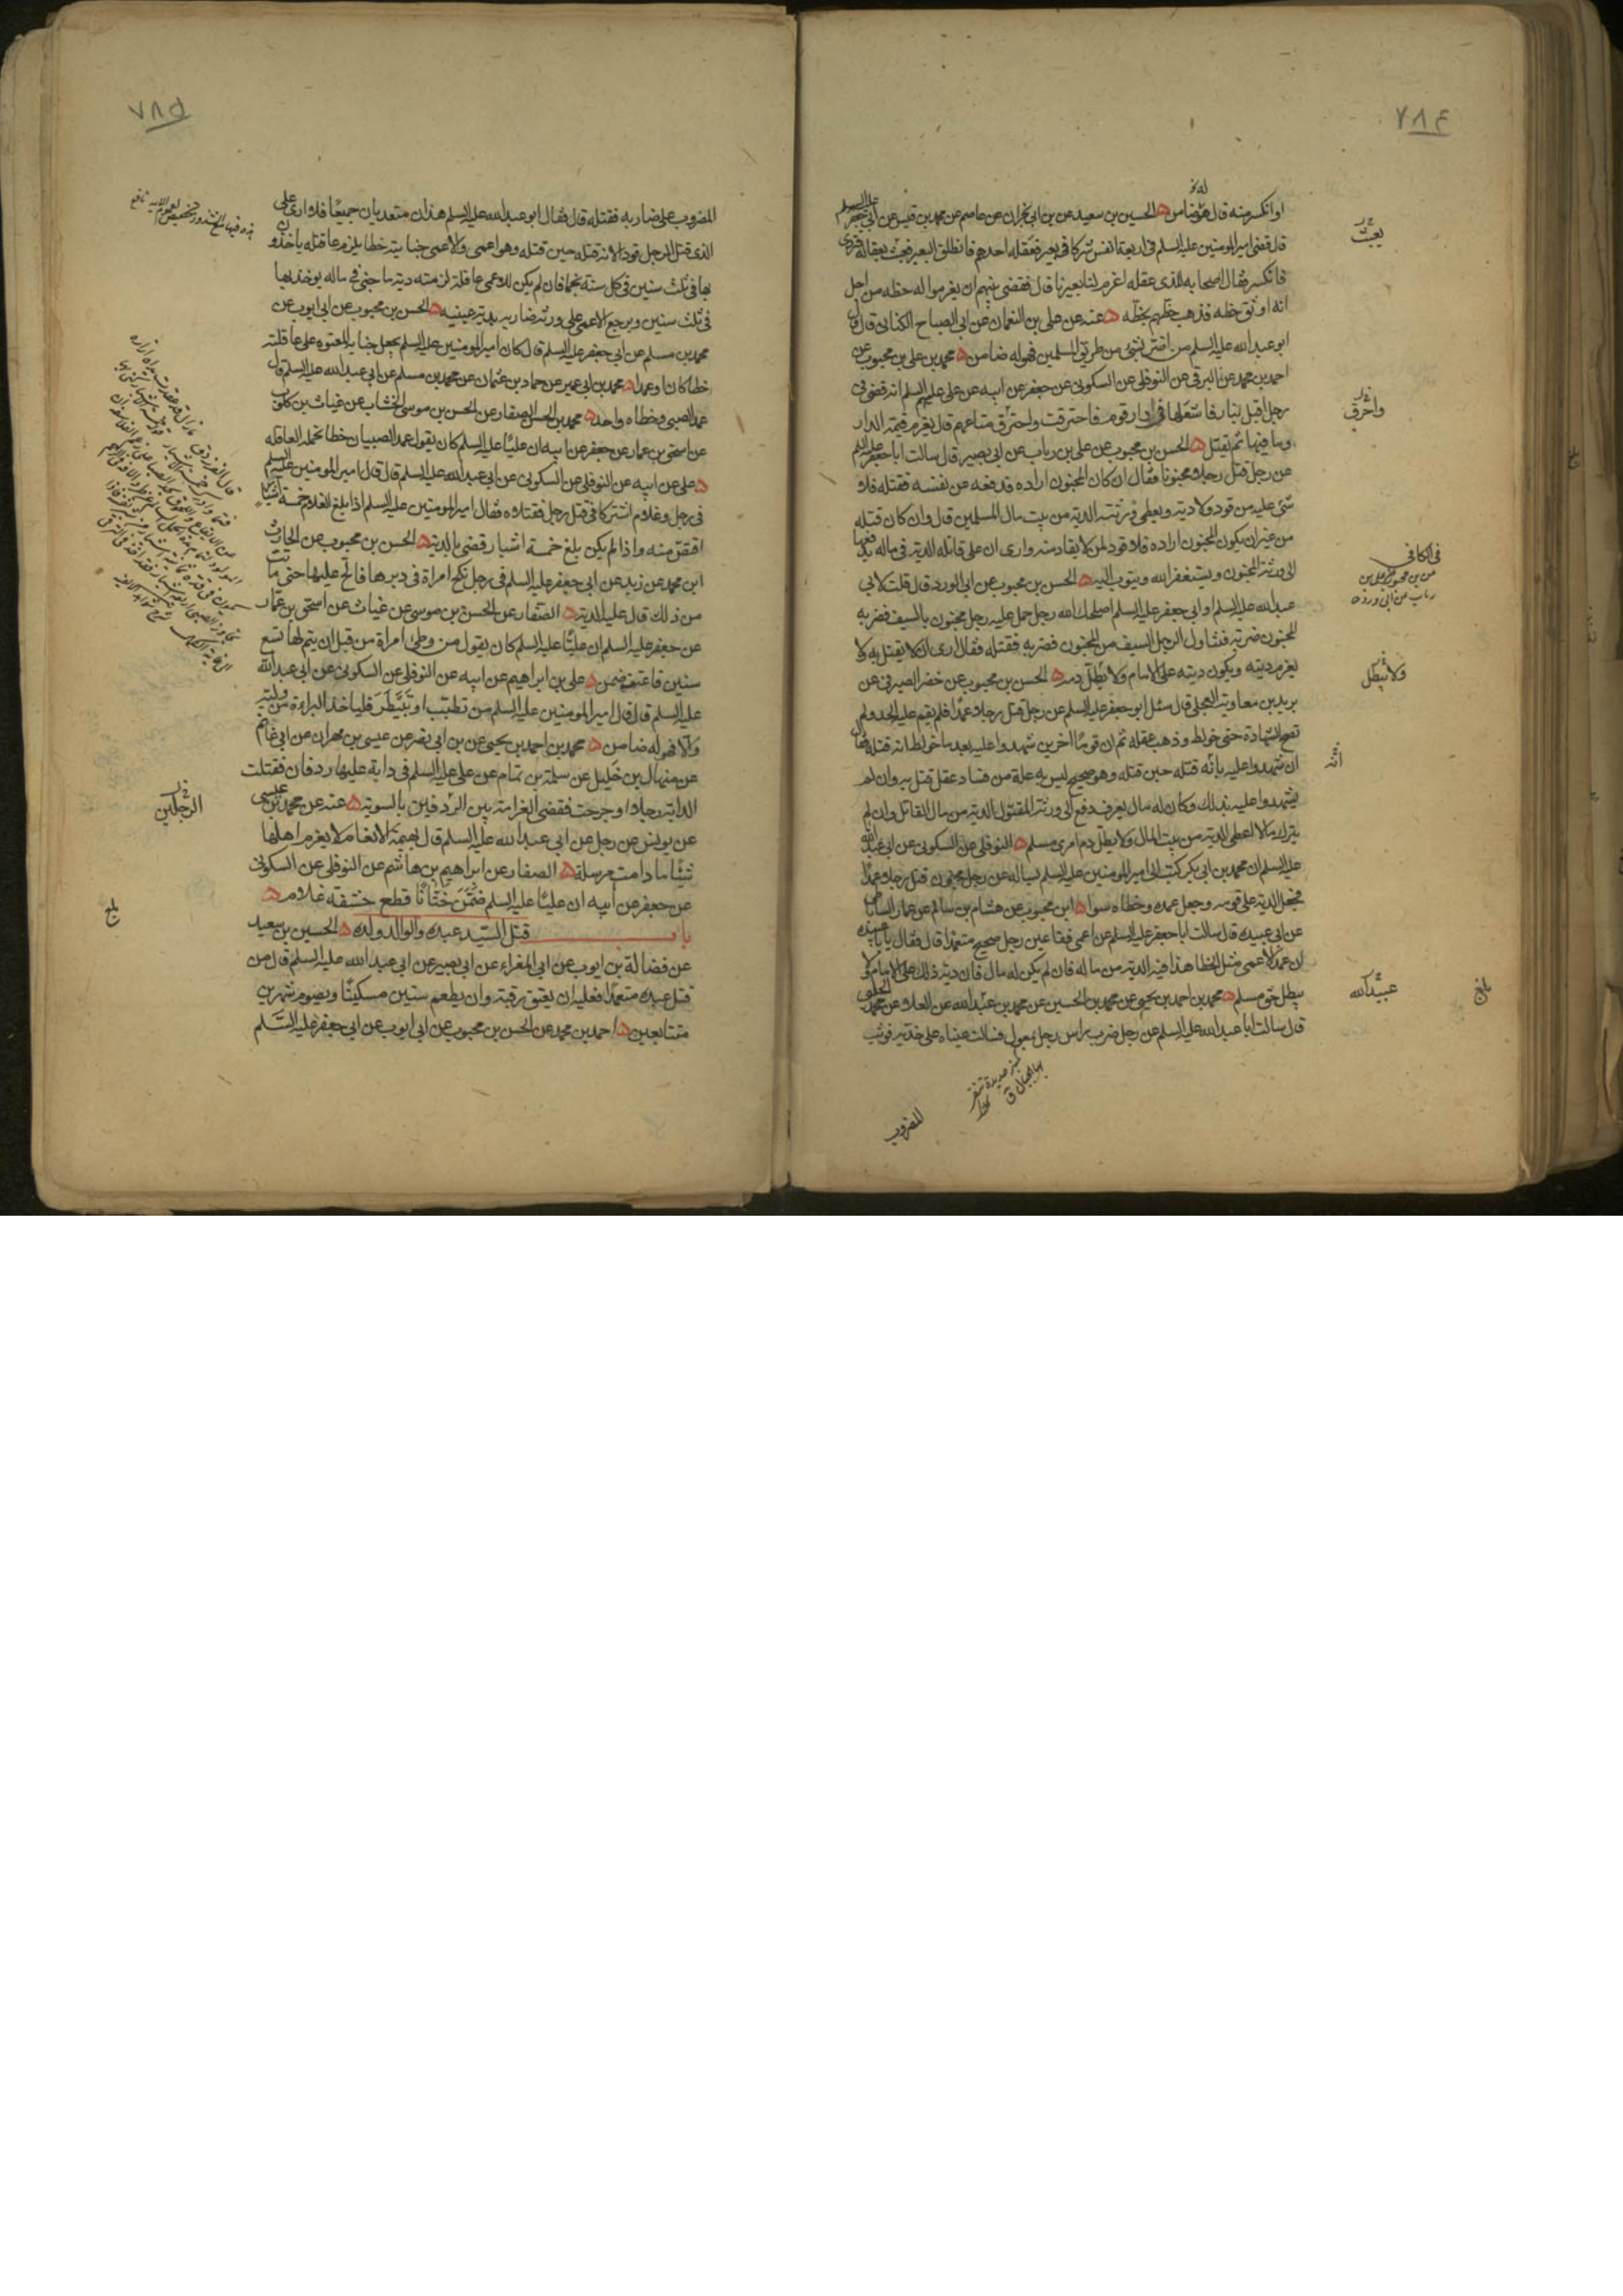 ٧٨٤
او انكسر منه قال هو ضامن الحسين بن سعيد عن بن ابي نجران عن عاصم عن محمد بن قيس عن ابي جعفر عليه السلم
قال قضى امير المومنين عليه السلم في اربعة انفس شركا في بعير فعقله احدهم فانطلق البعير فعبث بعقاله فتردى
فانكسر فقال اصحابه للذي عقله اغرم لنا بعيرنا قال فقضى بينهم ان يغرموا له حظه من اجل
انه اوثق حظه فذهب حظهم بحظه عنه عن علي بن النعمان عن ابي الصباح الكناني قال قال
ابو عبد الله عليه السلم من اضر بشئ من طريق المسلمين فهو له ضامن محمد بن علي بن محبوب عن
احمد بن محمد عن البرقي عن النوفلي عن السكوني عن جعفر عن ابيه عن علي عليهم السلم انه قضى في
رجل اقبل بنار فاشعلها في دار قوم فاحترقت واحترق متاعهم قال يغرم قيمة الدار
وما فيها ثم يقتل الحسن بن محبوب عن علي بن رياب عن ابي بصير قال سالت ابا جعفر عليه السلم
عن رجل قتل رجلا مجنونا فقال ان كان المجنون اراده فدفعه عن نفسه فقتله فلا
شئ عليه من قود ولا دية ويعطى ورثته الدية من بيت مال المسلمين قال وان كان قتله
من غير ان يكون المجنون اراده فلا قود لمن لا يقاد منه وارى ان على قاتله الدية في ماله يدفعها
الى ورثة المجنون ويستغفر الله ويتوب اليه الحسن بن محبوب عن ابي الورد قال قلت لابي
عبد الله عليه السلم او ابي جعفر عليه السلم اصلحك الله رجل حمل عليه رجل مجنون بالسيف فضربه
المجنون ضربة فتناول الرجل السيف من المجنون فضربه فقتله فقال ارى ان لا يقتل به ولا
يغرم ديته ويكون ديته على الامام ولا يطل دمه الحسن بن محبوب عن خضر الصيرفي عن
بريد بن معاوية العجلي قال سئل ابو جعفر عليه السلم عن رجل قتل رجلا عمدا فلم يقم عليه الحد ولم
تصح الشهادة حتى خولط وذهب عقله ثم ان قوما اخرين شهدوا عليه بعد ما خولط انه قتله فقال
ان شهدوا عليه بانه قتله حين قتله وهو صحيح ليس به علة من فساد عقل قتل به وان لم
يشهدوا عليه بذلك وكان له مال يعرف دفع الى ورثة المقتول الدية من مال القاتل وان لم
يترك مالا اعطى الدية من بيت المال ولا يطل دم امرئ مسلم النوفلي عن السكوني عن ابي عبد الله
عليه السلم ان محمد بن ابي بكر كتب الى امير المومنين عليه السلم يساله عن رجل مجنون قتل رجلا عمدا
فجعل الدية على قومه وجعل عمده وخطاه سوا ابن محبوب عن هشام بن سالم عن عمار الساباطي
عن ابي عبيدة قال سالت ابا جعفر عليه السلم عن اعمى فقا عين رجل صحيح متعمدا قال فقال يا با عبيدة
ان عمد الاعمى مثل الخطا هذا فيه الدية من ماله فان لم يكن له مال فان دية ذلك على الامام لا
يبطل حق مسلم محمد بن احمد بن يحيى عن محمد بن الحسين عن محمد بن عبد الله عن العلا عن محمد الحلبي
قال سالت ابا عبد الله عليه السلم عن رجل ضرب راس رجل بمعول فسالت عيناه على خديه فوثب
المضروب
يعبث
واحرق
في الكافي
ولا تبطل
انه
عبيد الله
بلغ
٧٨٥
المضروب على ضاربه فقتله قال فقال ابو عبد الله عليه السلم هذان متعديان جميعا فلا ارى على
الذي قتل الرجل قودا لانه قتله حين قتله وهو اعمى والاعمى جنايته خطا يلزم عاقلته ياخذون
بها في ثلث سنين في كل سنة نجما فان لم يكن للاعمى عاقلة لزمته دية ما جنى في ماله يوخذ بها
في ثلث سنين ويرجع الاعمى على ورثة ضاربه بدية عينيه الحسن بن محبوب عن ابي ايوب عن
محمد بن مسلم عن ابي جعفر عليه السلم قال كان امير المومنين عليه السلم يجعل جناية المعتوه على عاقلته
خطا كان او عمدا محمد بن ابي عمير عن حماد بن عثمان عن محمد بن مسلم عن ابي عبد الله عليه السلم قال
عمد الصبي وخطاه واحد محمد بن الحسن الصفار عن الحسن بن موسى الخشاب عن غياث بن كلوب
عن اسحق بن عمار عن جعفر عن ابيه ان عليا عليه السلم كان يقول عمد الصبيان خطا تحمله العاقلة
علي عن ابيه عن النوفلي عن السكوني عن ابي عبد الله عليه السلم قال قال امير المومنين عليه السلم
في رجل وغلام اشتركا في قتل رجل فقتلاه فقال امير المومنين عليه السلم اذا بلغ الغلام خمسة اشبار
اقتص منه واذا لم يكن بلغ خمسة اشبار قضي بالدية الحسن بن محبوب عن الحارث
ابن محمد عن زيد عن ابي جعفر عليه السلم في رجل نكح امراة في دبرها فالح عليها حتى ماتت
من ذلك قال عليه الدية الصفار عن الحسن بن موسى عن غياث عن اسحق بن عمار
عن جعفر عليه السلم ان عليا عليه السلم كان يقول من وطئ امراة من قبل ان يتم لها تسع
سنين فاعنف ضمن علي بن ابراهيم عن ابيه عن النوفلي عن السكوني عن ابي عبد الله
عليه السلم قال قال امير المومنين عليه السلم من تطبب او تبيطر فلياخذ البراءة من وليه
والا فهو له ضامن محمد بن احمد بن يحيى عن بن ابي نصر عن عيسى بن مهران عن ابي غانم
عن منهال بن خليل عن سلمة بن تمام عن علي عليه السلم في دابة عليها ردفان فقتلت
الدابة رجلا او جرحت فقضى الغرامة بين الردفين بالسوية عنه عن محمد بن عيسى
عن يونس عن رجل عن ابي عبد الله عليه السلم قال بهيمة الانعام لا يغرم اهلها
شيئا ما دامت مرسلة الصفار عن ابراهيم بن هاشم عن النوفلي عن السكوني
عن جعفر عن ابيه ان عليا عليه السلم ضمن ختانا قطع حشفة غلام
باب قتل السيد عبده والوالد ولده الحسين بن سعيد
عن فضالة بن ايوب عن ابي المغراء عن ابي بصير عن ابي عبد الله عليه السلم قال من
قتل عبده متعمدا فعليه ان يعتق رقبة وان يطعم ستين مسكينا ويصوم شهرين
متتابعين احمد بن محمد عن الحسن بن محبوب عن ابي ايوب عن ابي جعفر عليه السلم
الرجلين
بلغ